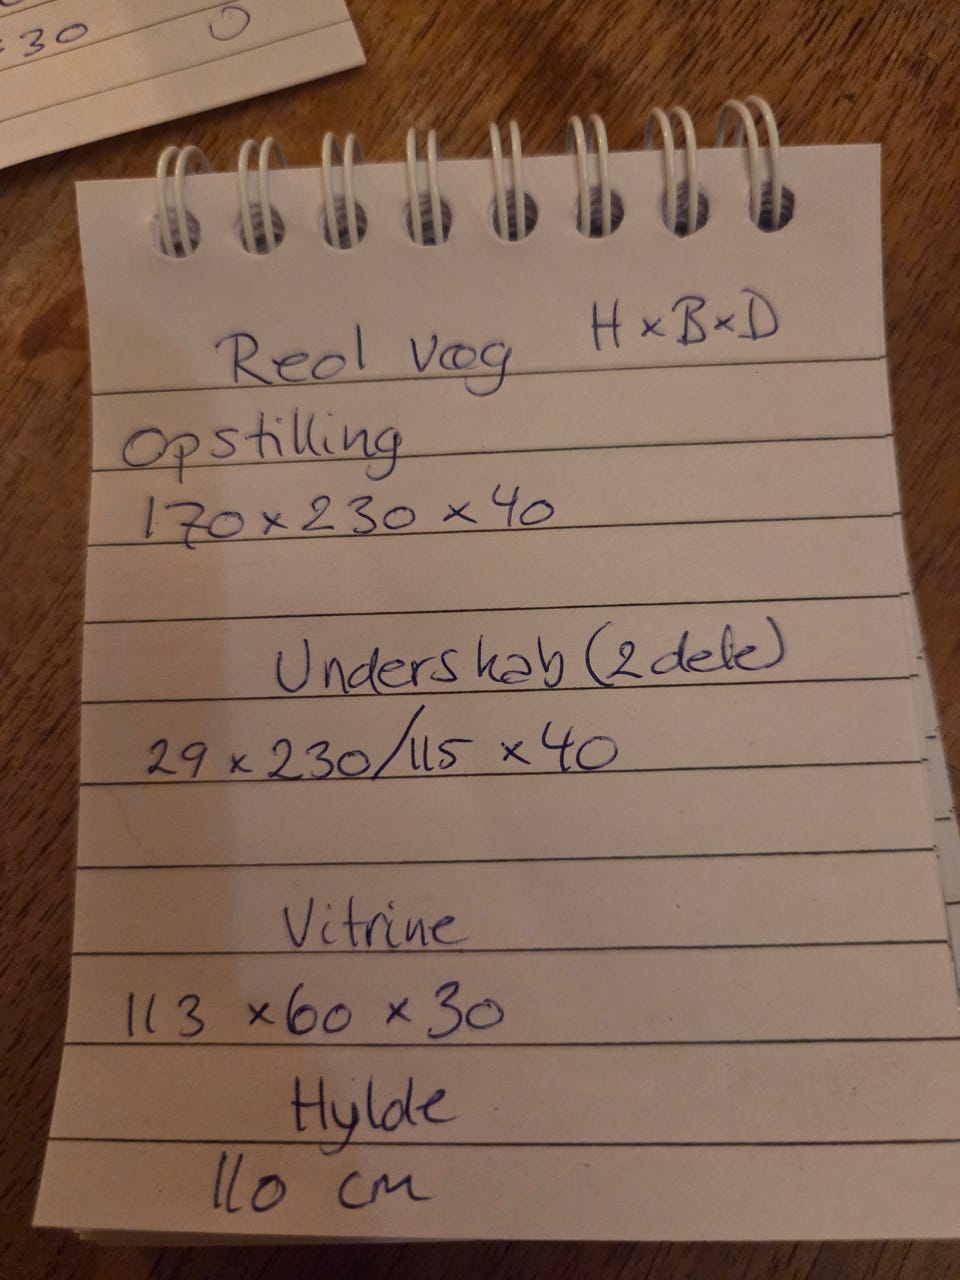 :30 O
Reol væg H×B×D
Opstilling
170×230×40
Underskab (2 dele)
29×230/115×40
Vitrine
113×60×30
Hylde
110 cm